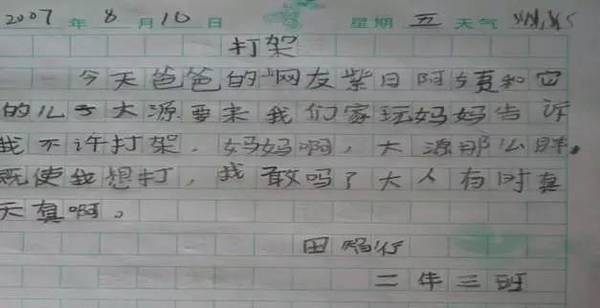 2007 年 8 月 10 日 星期 五 天气
打架
今天爸爸的网友紫日阿姨和它
的儿子大源要来我们家玩妈妈告诉
我不许打架．妈妈啊，大源那么胖。
既使我想打，我敢吗？大人有时真
天真啊。
田
二年三班